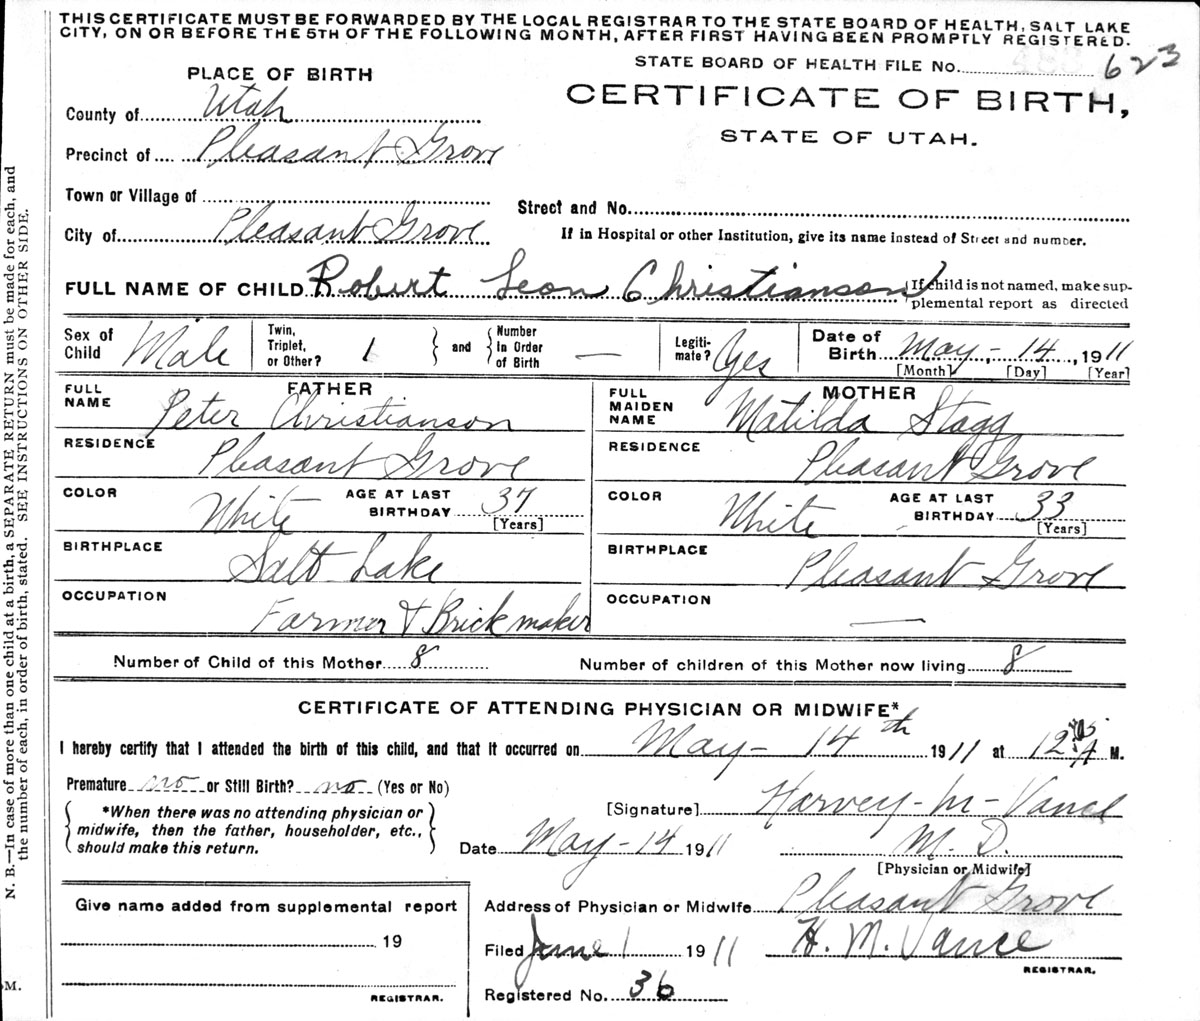 THIS CERTIFICATE MUST BE FORWARDED BY THE LOCAL REGISTRAR TO THE STATE BOARD OF HEALTH, SALT LAKE
CITY, ON OR BEFORE THE 5TH OF THE FOLLOWING MONTH, AFTER FIRST HAVING BEEN PROMPTLY REGISTERED.
STATE BOARD OF HEALTH FILE No. 623
PLACE OF BIRTH
CERTIFICATE OF BIRTH,
STATE OF UTAH.
County of Utah
Precinct of Pleasant Grove
Town or Village of
Street and No.
City of Pleasant Grove
If in Hospital or other Institution, give its name instead of Street and number.
FULL NAME OF CHILD Robert Leon Christianson
If child is not named, make sup-
plemental report as directed
Sex of Child Male
Twin, Triplet, or Other? 1
and
Number In Order of Birth —
Legiti-mate? Yes
Date of Birth May - 14, 1911
[Month] [Day] [Year]
FATHER
FULL NAME Peter Christianson
RESIDENCE Pleasant Grove
COLOR White AGE AT LAST BIRTHDAY 37
[Years]
BIRTHPLACE Salt Lake
OCCUPATION Farmer & Brickmaker
MOTHER
FULL MAIDEN NAME Matilda Stagg
RESIDENCE Pleasant Grove
COLOR White AGE AT LAST BIRTHDAY 33
[Years]
BIRTHPLACE Pleasant Grove
OCCUPATION —
Number of Child of this Mother 8 Number of children of this Mother now living 8
CERTIFICATE OF ATTENDING PHYSICIAN OR MIDWIFE*
I hereby certify that I attended the birth of this child, and that it occurred on May - 14th 1911 at 12:05 A M.
Premature no or Still Birth? no (Yes or No)
*When there was no attending physician or
midwife, then the father, householder, etc.,
should make this return.
[Signature] Harvey - M - Vance
Date May - 14 1911 M. D.
[Physician or Midwife]
Give name added from supplemental report
19
REGISTRAR.
Address of Physician or Midwife Pleasant Grove
Filed June 1 1911 H. M. Vance
REGISTRAR.
Registered No. 36
N. B.—In case of more than one child at a birth, a SEPARATE RETURN must be made for each, and
the number of each, in order of birth, stated. SEE INSTRUCTIONS ON OTHER SIDE.
M.